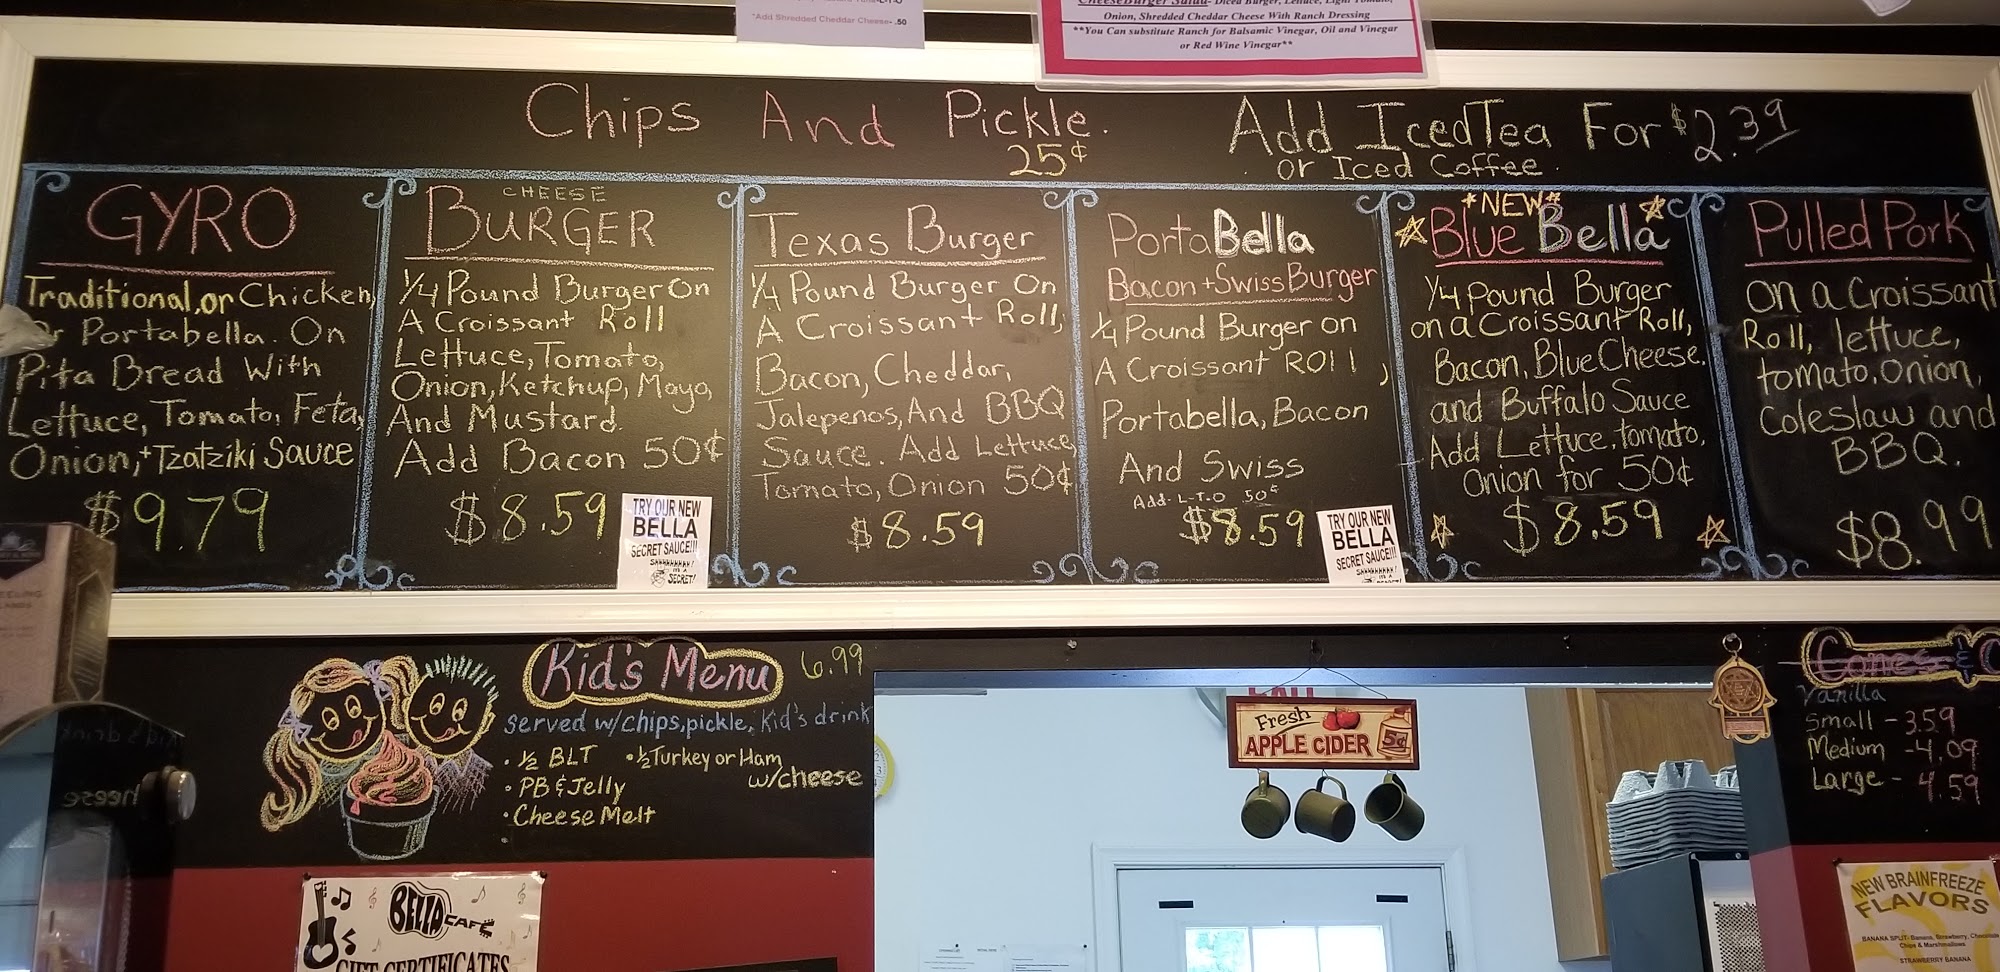 *Add Shredded Cheddar Cheese- .50
CheeseBurger Salad- Diced Burger, Lettuce, Light Tomato,
Onion, Shredded Cheddar Cheese With Ranch Dressing
**You Can substitute Ranch for Balsamic Vinegar, Oil and Vinegar
or Red Wine Vinegar**
Chips And Pickle.
25¢
Add Iced Tea For $2.39
or Iced Coffee.
GYRO
Traditional, or Chicken,
Or Portabella. On
Pita Bread With
Lettuce, Tomato, Feta,
Onion, + Tzatziki Sauce
$9.79
CHEESE
BURGER
1/4 Pound Burger On
A Croissant Roll
Lettuce, Tomato,
Onion, Ketchup, Mayo,
And Mustard.
Add Bacon 50¢
$8.59
TRY OUR NEW
BELLA
SECRET SAUCE!!!
SECRET!
Texas Burger
1/4 Pound Burger On
A Croissant Roll,
Bacon, Cheddar,
Jalepenos, And BBQ
Sauce. Add Lettuce,
Tomato, Onion 50¢
$8.59
PortaBella
Bacon + Swiss Burger
1/4 Pound Burger on
A Croissant ROll,
Portabella, Bacon
And Swiss
Add L-T-O 50¢
$8.59
TRY OUR NEW
BELLA
SECRET SAUCE!!!
*NEW*
Blue Bella
1/4 Pound Burger
on a Croissant Roll,
Bacon, Blue Cheese.
and Buffalo Sauce
Add Lettuce, tomato,
Onion for 50¢
$8.59
Pulled Pork
on a Croissant
Roll, lettuce,
tomato, onion,
Coleslaw and
BBQ.
$8.99
Kid's Menu 6.99
served w/chips, pickle, Kid's drink
· 1/2 BLT · 1/2 Turkey or Ham
w/cheese
· PB & Jelly
· Cheese Melt
BELLA CAFE
GIFT CERTIFICATES
EXIT
Fresh
APPLE CIDER
5¢
Cones &
Vanilla
Small - 3.59
Medium - 4.09
Large - 4.59
NEW BRAINFREEZE
FLAVORS
BANANA SPLIT- Banana, Strawberry, Chocolate
Chips & Marshmallows
STRAWBERRY BANANA